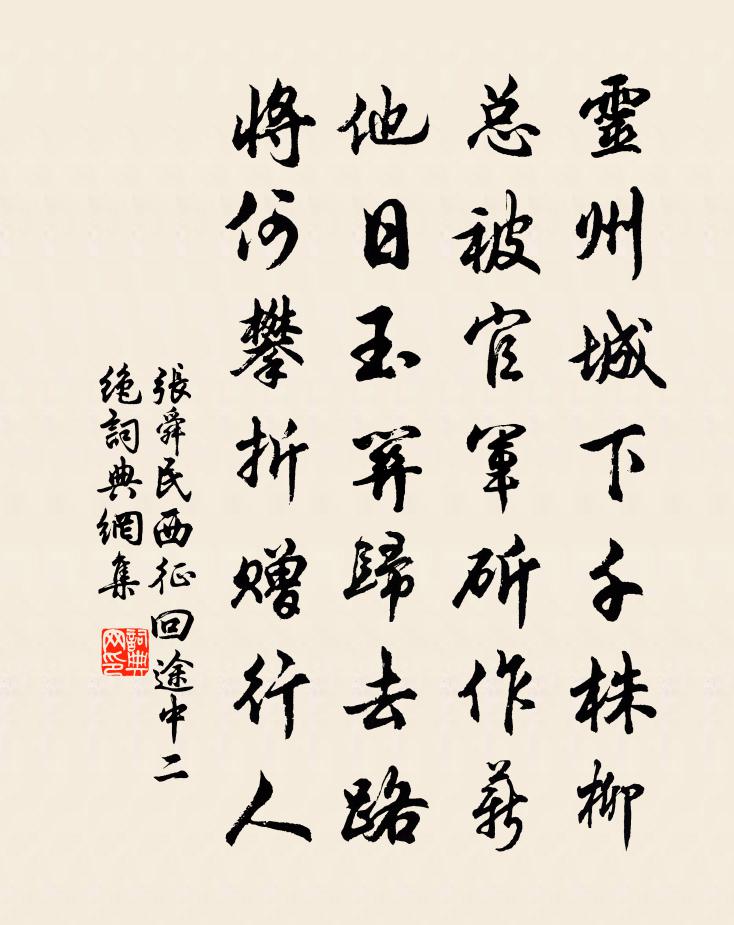 靈州城下千株柳
总被官軍斫作薪
他日玉関歸去路
將何攀折贈行人
張舜民西征回途中二
绝詞典網集
詞典网印